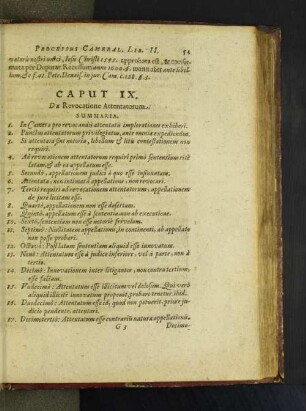 PROCESSUS CAMERAL. LIB. II. 52
CAPUT IX.
De Revocatione Attentatorum.
SUMMARIA.
1. In Camera pro revocandis attentatis simpliciter
2. Punctus attentatorum privilegiatus, ante omnia expediendus.
3. Si attentata sint notoria, libellum & litis contestationem non
requiri.
4. Ad revocationem attentatorum requiri primò sententiam esse
latam, & ab ea appellatum esse.
5. Secundò, appellationem judici à quo esse insinuatam.
6. Attentata, non intimata appellatione, non revocari.
7. Tertiò requiri ad revocationem attentatorum, appellationem
de jure licitam esse.
8. Quartò, appellationem non esse desertam.
9. Quintò, appellatum esse à sententia non ab executione.
10. Sextò, sententiam non esse notoriè
11. Septimò: Nullitatem appellationis, in continenti, ab appellato
non posse probari.
12. Octavò: Post latam sententiam aliquid esse innovatum.
13. Nonò: Attentatum esse à judice inferiore, vel à parte, non à
tertio.
14. Decimò: Innovationem inter litigantes, non contra tertium,
esse factam.
15. Undecimò: Attentatum esse illicitum vel dolosum. Qui verò
aliquid illicitè innovatum proponit, probare tenetur ibid.
16. Duodecimò: Attentatum esse id, quod non potuerit, priore judicio pendente, attentari.
17. Decimotertiò: Attentatum esse contrarium natura appellationis.
G 3 Decimo-